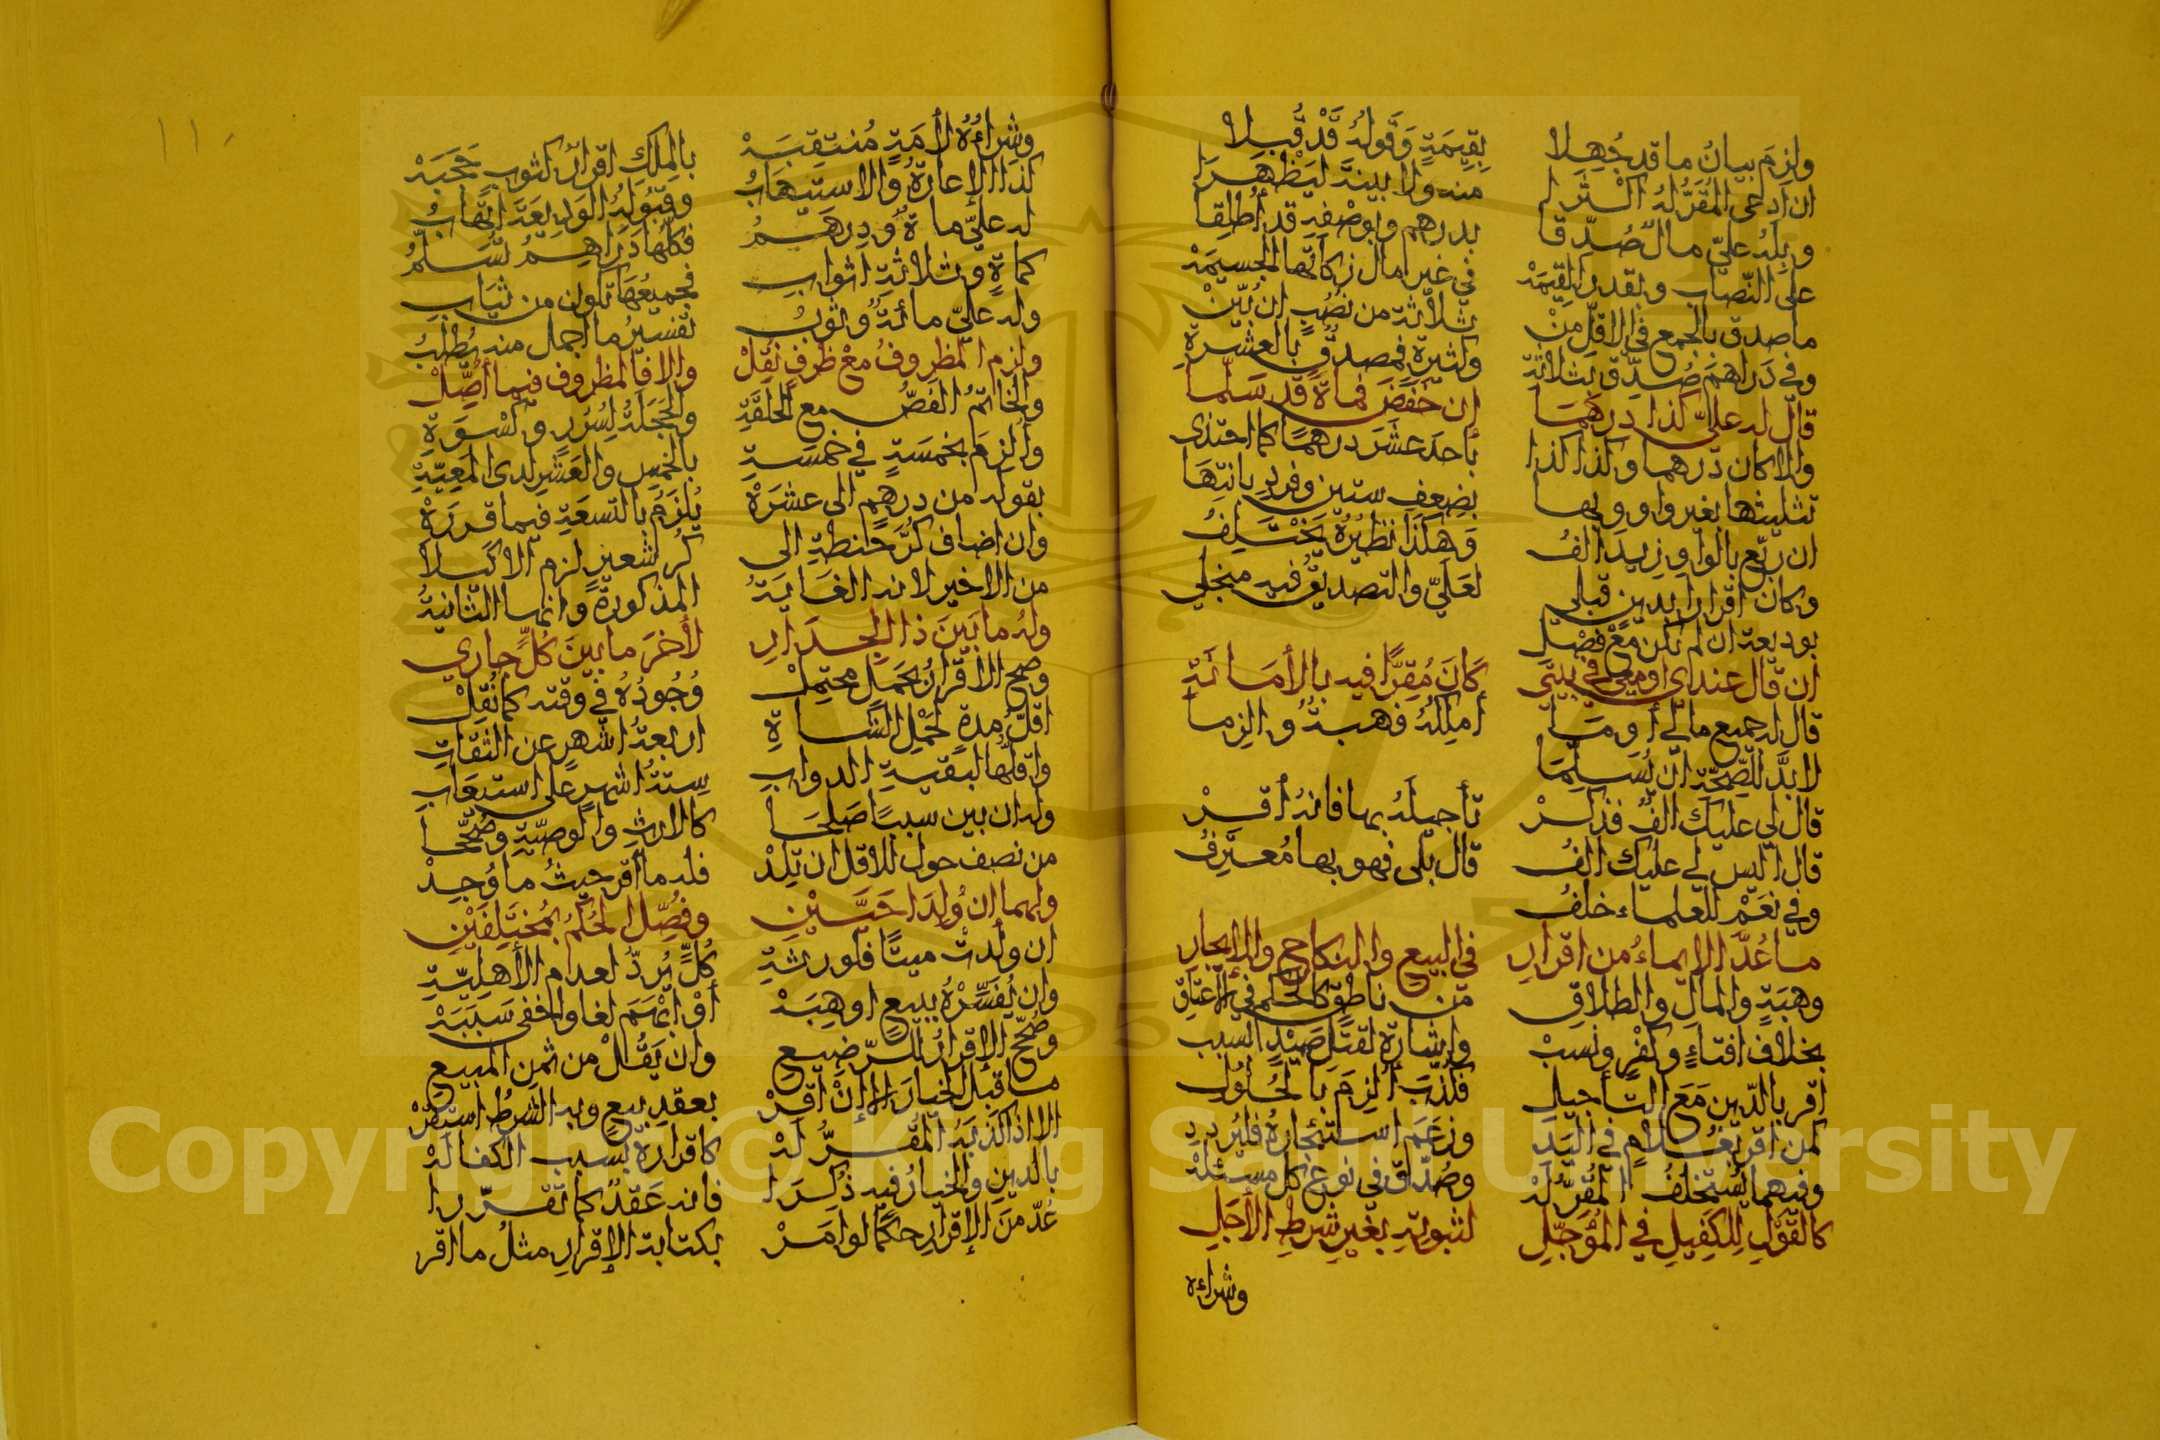 ولزم بيان ما قد جهلا بقيمة وقوله قد قبلا
ان ادعى المقر له اكثر لا منه ولا بينة ليظهرا
وبله علي مال صدقا بدرهم وبوصفه قد أطلقا
على النصاب وبقدر القيمة في غير مال زكاتها الجسيمة
ما صدق بالجمع في الاقل من ثلاثة من نصب ان يبن
وفي دراهم صدق بثلاثة وكثيرة فمصدق بالعشرة
قال له علي كذا درهما ان خفض فمائة قد سلما
والا كان درهما وكذا كذا بأحد عشر درهما كما احتذى
تثليثها بغير واو وبها بضعف ستين وفرد بانتها
ان ربع بالواو زيد الف وهكذا نظيره يختلف
وكان اقرارا بدين قبلي لعلي والتصديق فيه منجلي
بوديعة ان لم تكن مع فصل
ان قال عندي او معي في بيتي كان مقرا فيه بالأمانة
قال له جميع مالي أو ما أملكه فهبة والزما
لابد للصحة ان يسلما
قال لي عليك الف فذكر تأجيله بها فانه أقر
قال أليس لي عليك الف قال بلى فهو بها معترف
وفي نعم للعلماء خلف
ما عد الايماء من اقرار في البيع والنكاح والإيجار
وهبة والمال والطلاق من ناطق كالحكم في الاعتاق
بخلاف افتاء وكفر ونسب وإشارة لقتل صيد السبب
اقر بالدين مع التأجيل فكذب ألزم بالحلول
كمن اقر بغلام في اليد وزعم استئجاره فليردد
وفيهما يستحلف المقر له وصداق في نوع كل مسئلة
كالقول للكفيل في المؤجل لثبوته بغير شرط الأجل
وشراءه
١١٠
وشراؤه لأمة منتقبة بالملك اقرار كثوب حجبه
كذا الإعارة والاستيهاب وقبوله الوديعة اتهاب
له علي مائة ودرهم فكلها دراهم تسلم
كمائة وثلاثة اثواب فجميعها تكون من ثياب
وله علي مائة وثوب تفسير ما اجمل منه يطلب
ولزم المظروف مع ظرف نقل والا فالمظروف فيما أصل
والخاتم الفص مع الحلقة والحجلة لسرر وكسوة
وألزم بخمسة في خمسة بالخمس والعشر لدى المعية
بقوله من درهم الى عشره يلزم بالتسعة فيما قرره
وان اضاف كر حنطة الى كر شعير لزم الا كيلا
من الاخير لانه الغاية المذكورة وانها الثانية
وله ما بين ذا الجدار لأخر ما بين كل جاري
وصح الاقرار بحمل محتمل وجوده في وقته كما نقل
اقل مدة لحمل الشاة اربعة اشهر عن الثقات
واقلها لبقية الدواب ستة اشهر على استيعاب
وله ان بين سببا صلحا كالارث والوصية وصححا
من نصف حول للاقل ان تلد فله ما أقر حيث ما وجد
ولهما إن ولدا حيين وفصل الحكم بمختلفين
ان ولدت ميتا فلورثة كل يرد لعدام الأهلية
وان يفسره ببيع او هبه أو ابهم لغا والمخفى سببه
وصحح الإقرار للرضيع وان يقل من ثمن المبيع
ما قبل الخيار الا إن اقر بعقد بيع وبه الشرط استقر
الا اذا كذبه المقر له كاقراره بسبب الكفالة
بالدين والخيار فيه ذكرا فانه عقد كما تقررا
عد من الإقرار حكما لو امر بكتابة الإقرار مثل ما اقر
Copyright © King Saud University